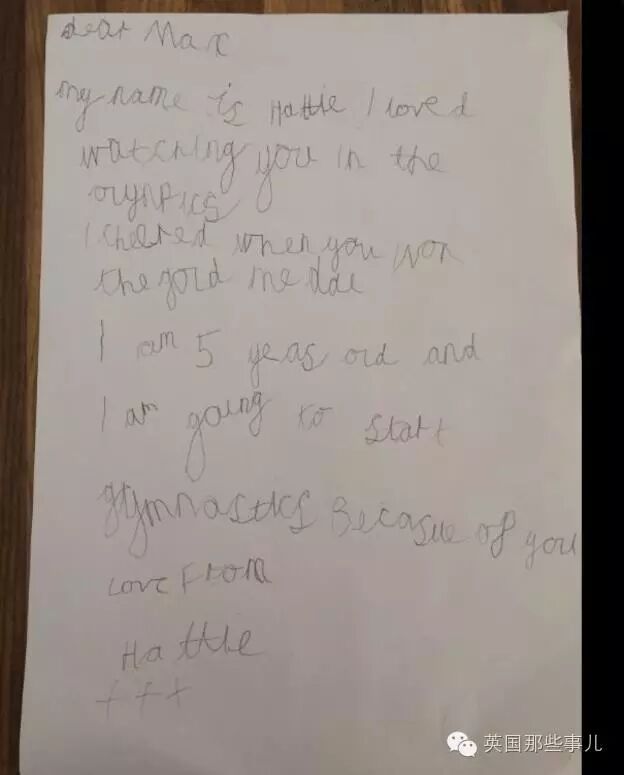 dear Max
my name is Hattie I loved
watching you in the
olynpics
I cheered when you won
the gold medal
I am 5 yeas old and
I am going to start
gymnastics Becasue of you
Love From
Hattie
+++
英国那些事儿